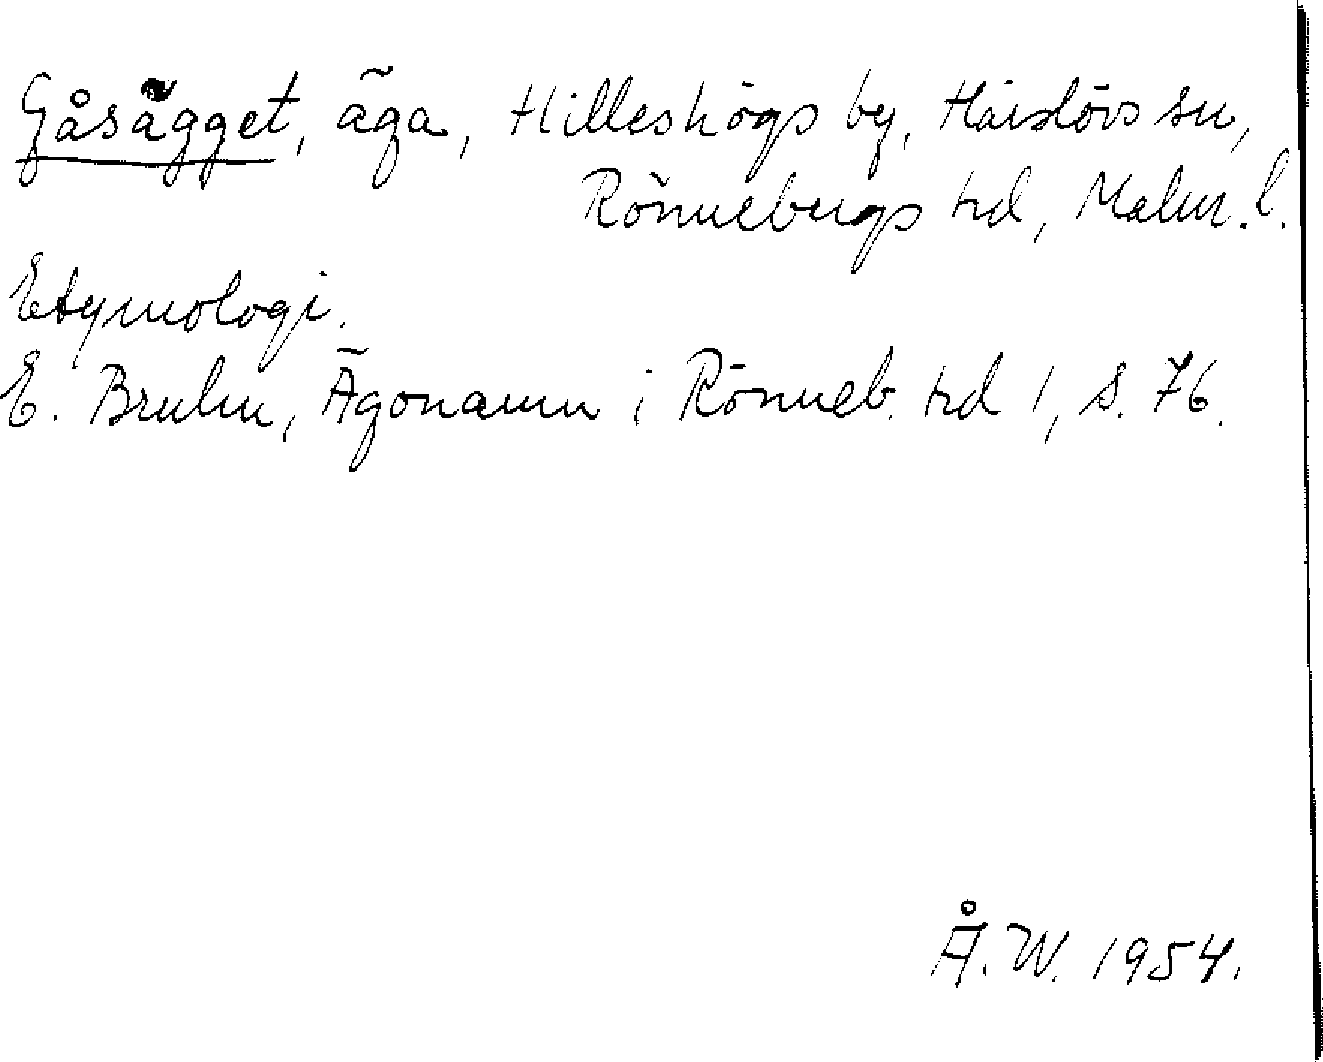 Gåsägget, äga, Hilleshögs by, Härslövs sn,
Rönnebergs hd, Malm. l.
Etymologi.
E. Bruhn, Ägonamn i Rönneb. hd 1, s. 76.
Å. W. 1954.